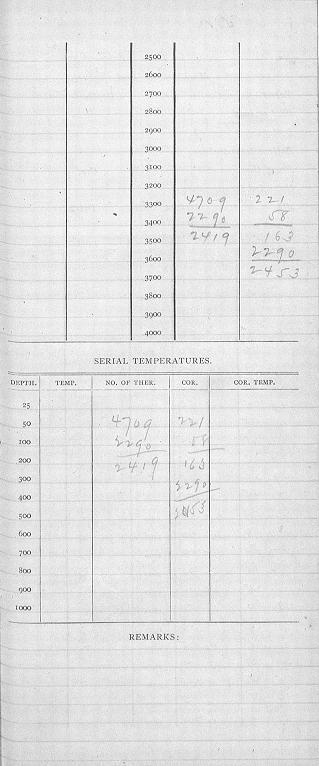 2500
2600
2700
2800
2900
3000
3100
3200
3300 4709 221
3400 2290 58
3500 2419 163
3600 2290
3700 2453
3800
3900
4000
SERIAL TEMPERATURES.
DEPTH. TEMP. NO. OF THER. COR. COR. TEMP.
25
50 4709 221
100 2290 58
200 2419 163
300 2290
400
500 2453
600
700
800
900
1000
REMARKS: